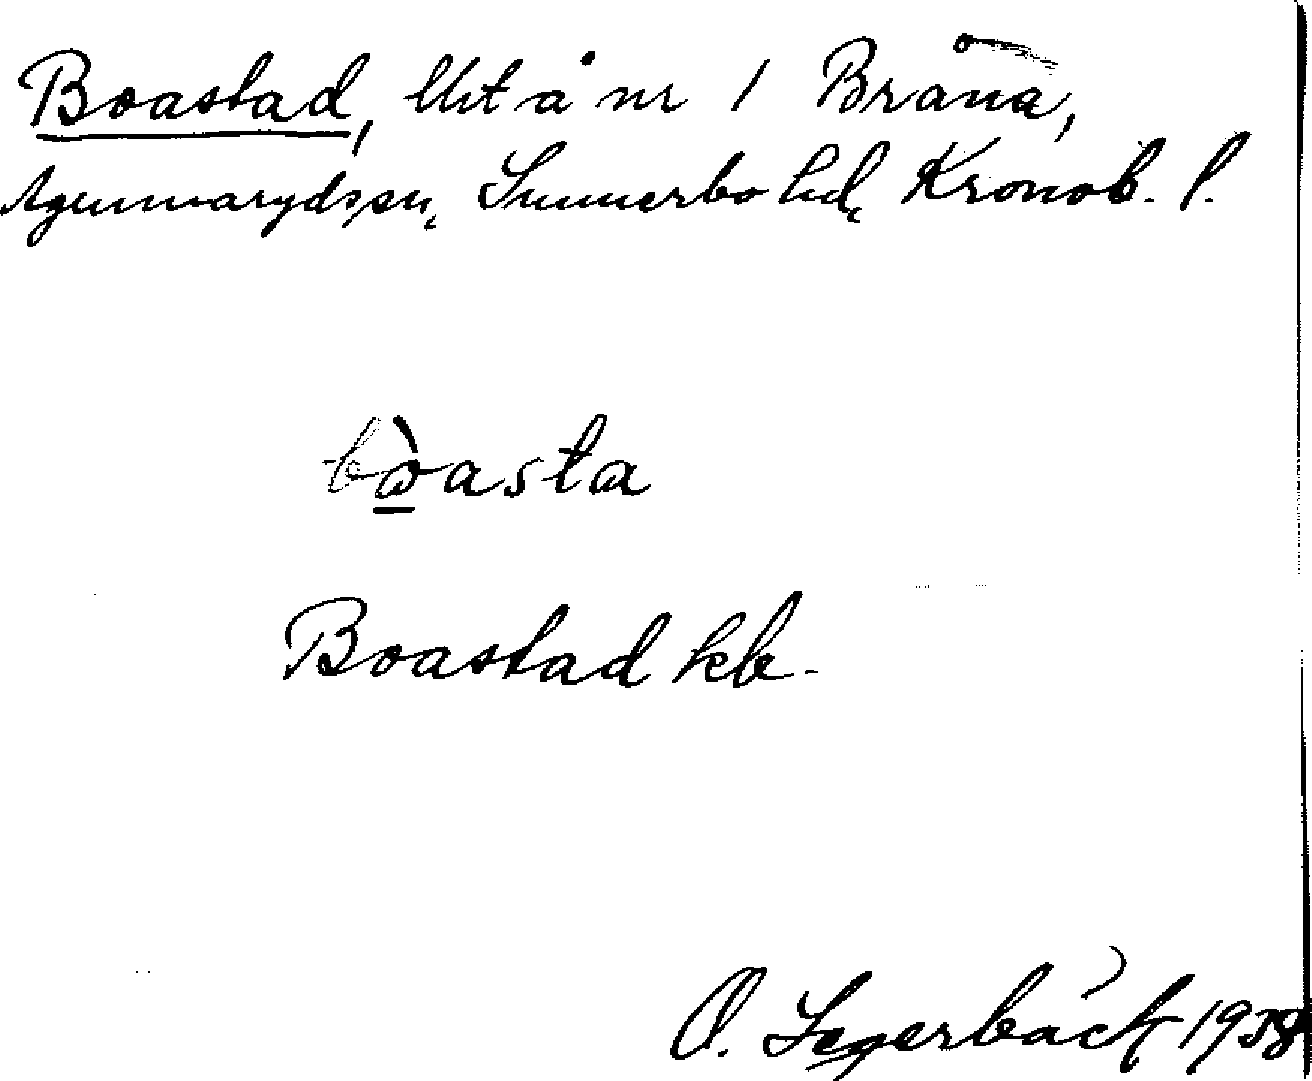 Boastad, lht å nr 1 Bråna,
Agunnarydssn, Sunnerbo hd, Kronob. l.
bòasta
Boastad kb.
O. Segerbäck 1938